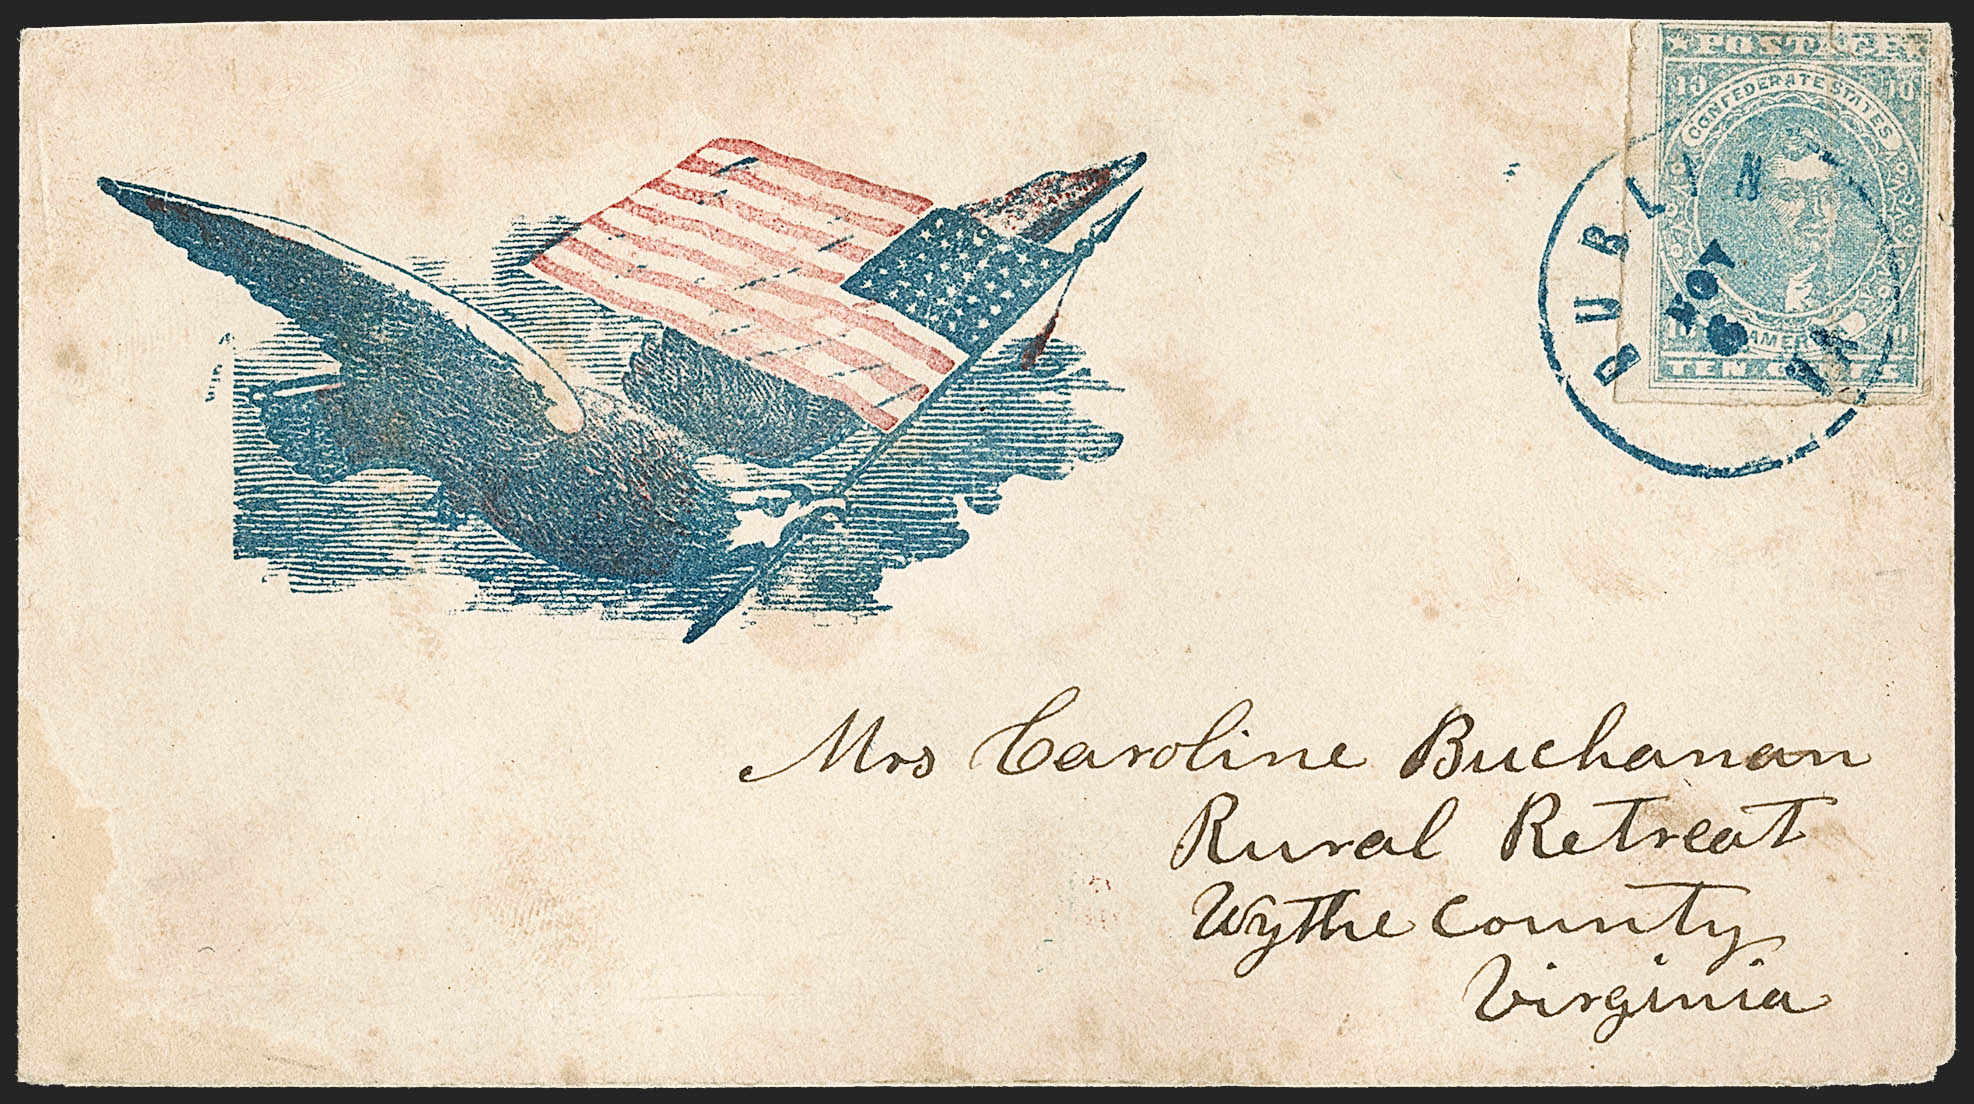 ★POSTAGE★
10 10
CONFEDERATE STATES
AMERICA
TEN CENTS
DUBLIN
VA
NOV
6
Mrs Caroline Buchanan
Rural Retreat
Wythe County
Virginia